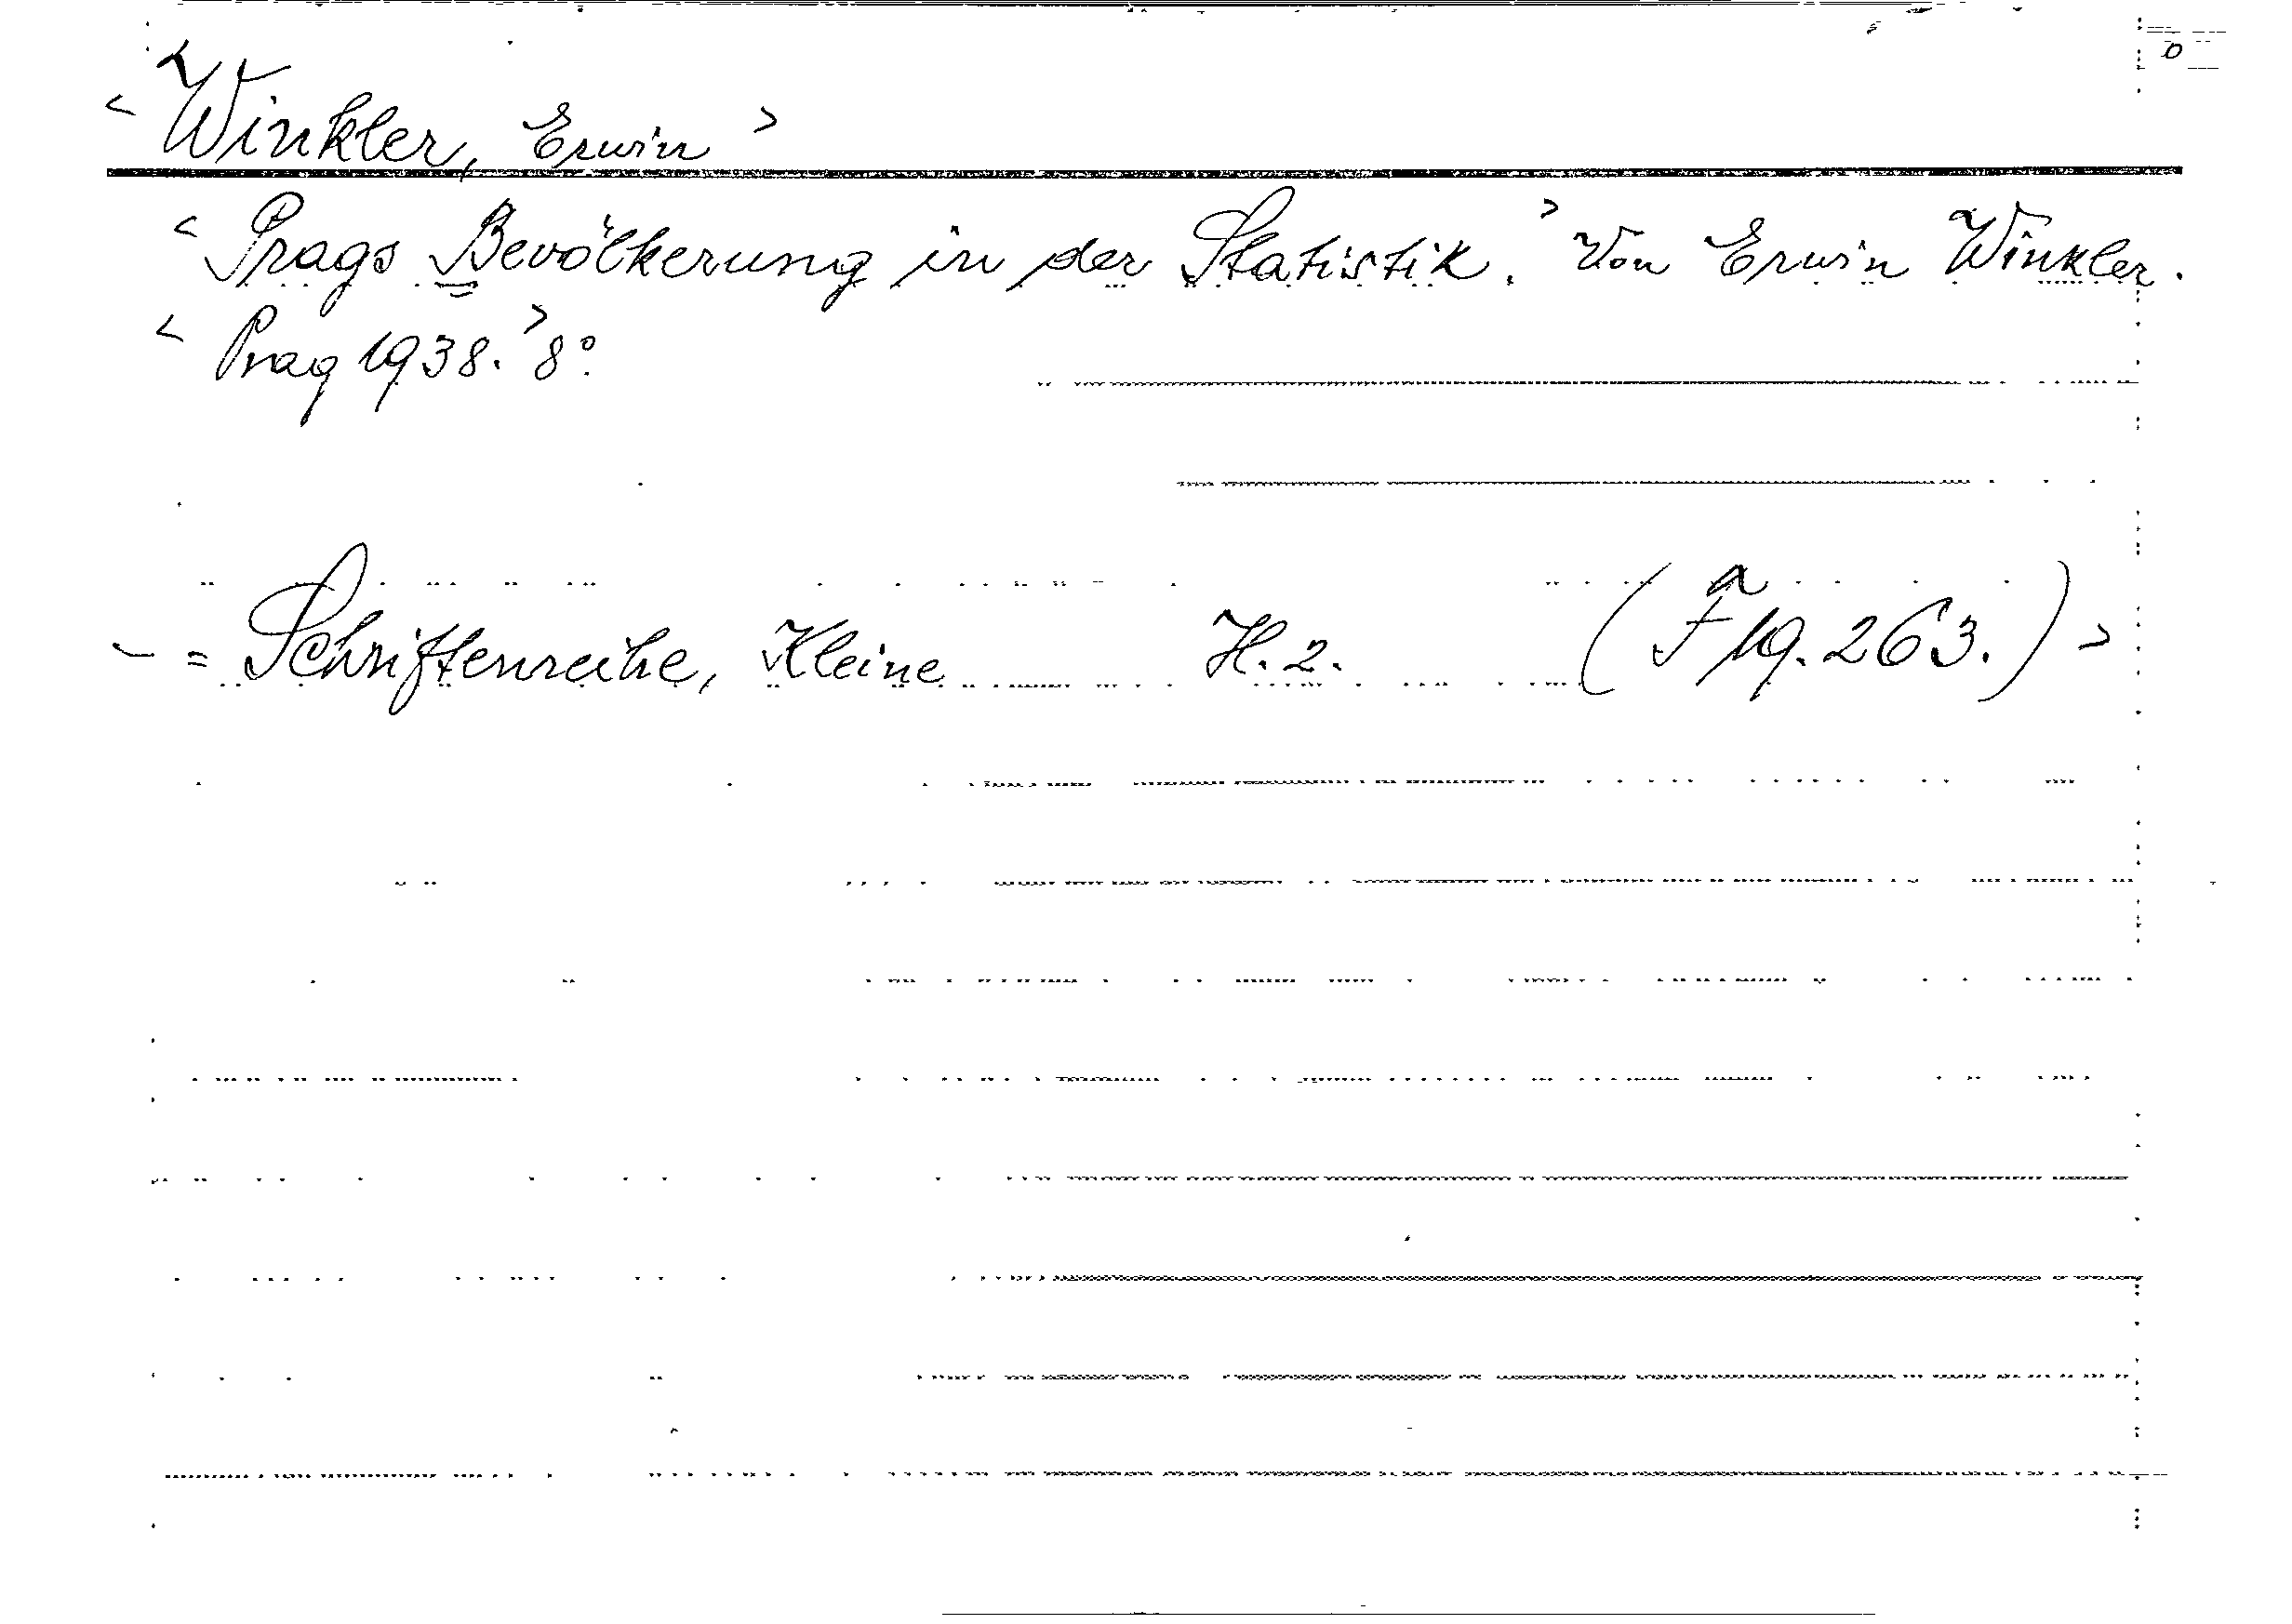 < Winkler, Erwin >
< Prags Bevölkerung in der Statistik. > Von Erwin Winkler.
< Prag 1938. > 8°.
- = Schriftenreihe, Kleine H. 2. (F 19. 263.) >